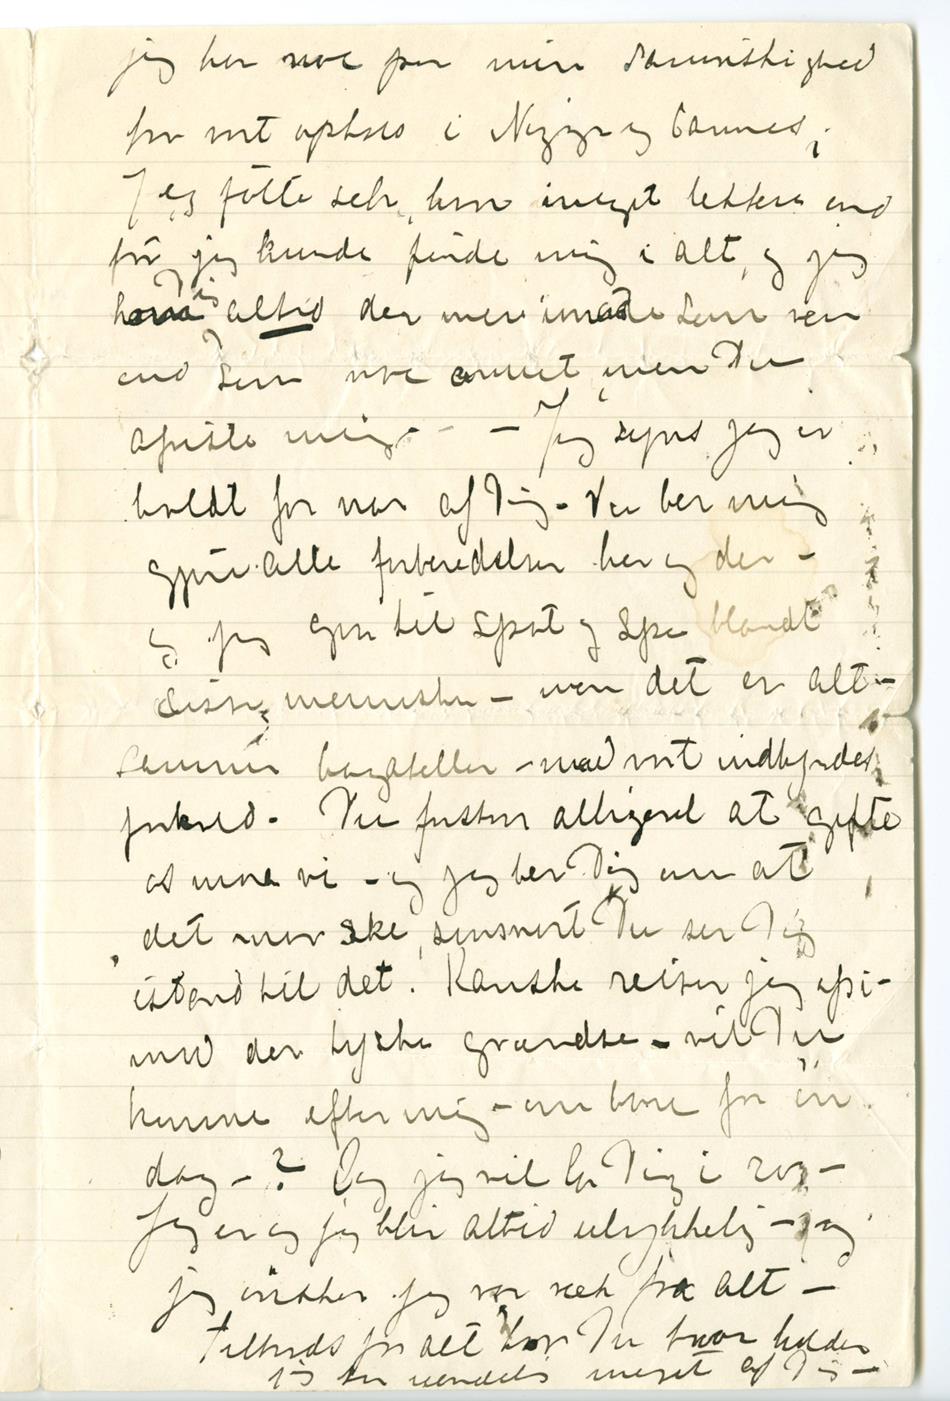 jeg har noe paa min samvittighed
fra vort ophold i Nizza og Cannes;
Jeg følte selv, hvor meget lettere end
før jeg kunde finde mig i alt, og jeg
altid den som ven
end som noe annet men Du
mig - - - Jeg synes jeg er
holdt for nar af Dig - Du ber mig
gjøre alle forberedelser her og der -
og jeg gøres til Spot og Spe blandt
disse mennesker - men det er alt-
sammen bagateller - mod vort indbyrdes
forhold. Du forstaar alligevel at gifte
os maa vi - og jeg ber Dig om at
det maa ske, snart Du ser Dig
istand til det. Kanske reiser jeg
mod den tyske grændse - vil Du
komme efter mig - om bare for én
dag - ? Og jeg vil la Dig i ro -
Jeg er og jeg blir altid ulykkelig - og
jeg ønsker jeg var væk fra alt -
Tiltrods for alt bør Du tro
jeg er meget af Dig -